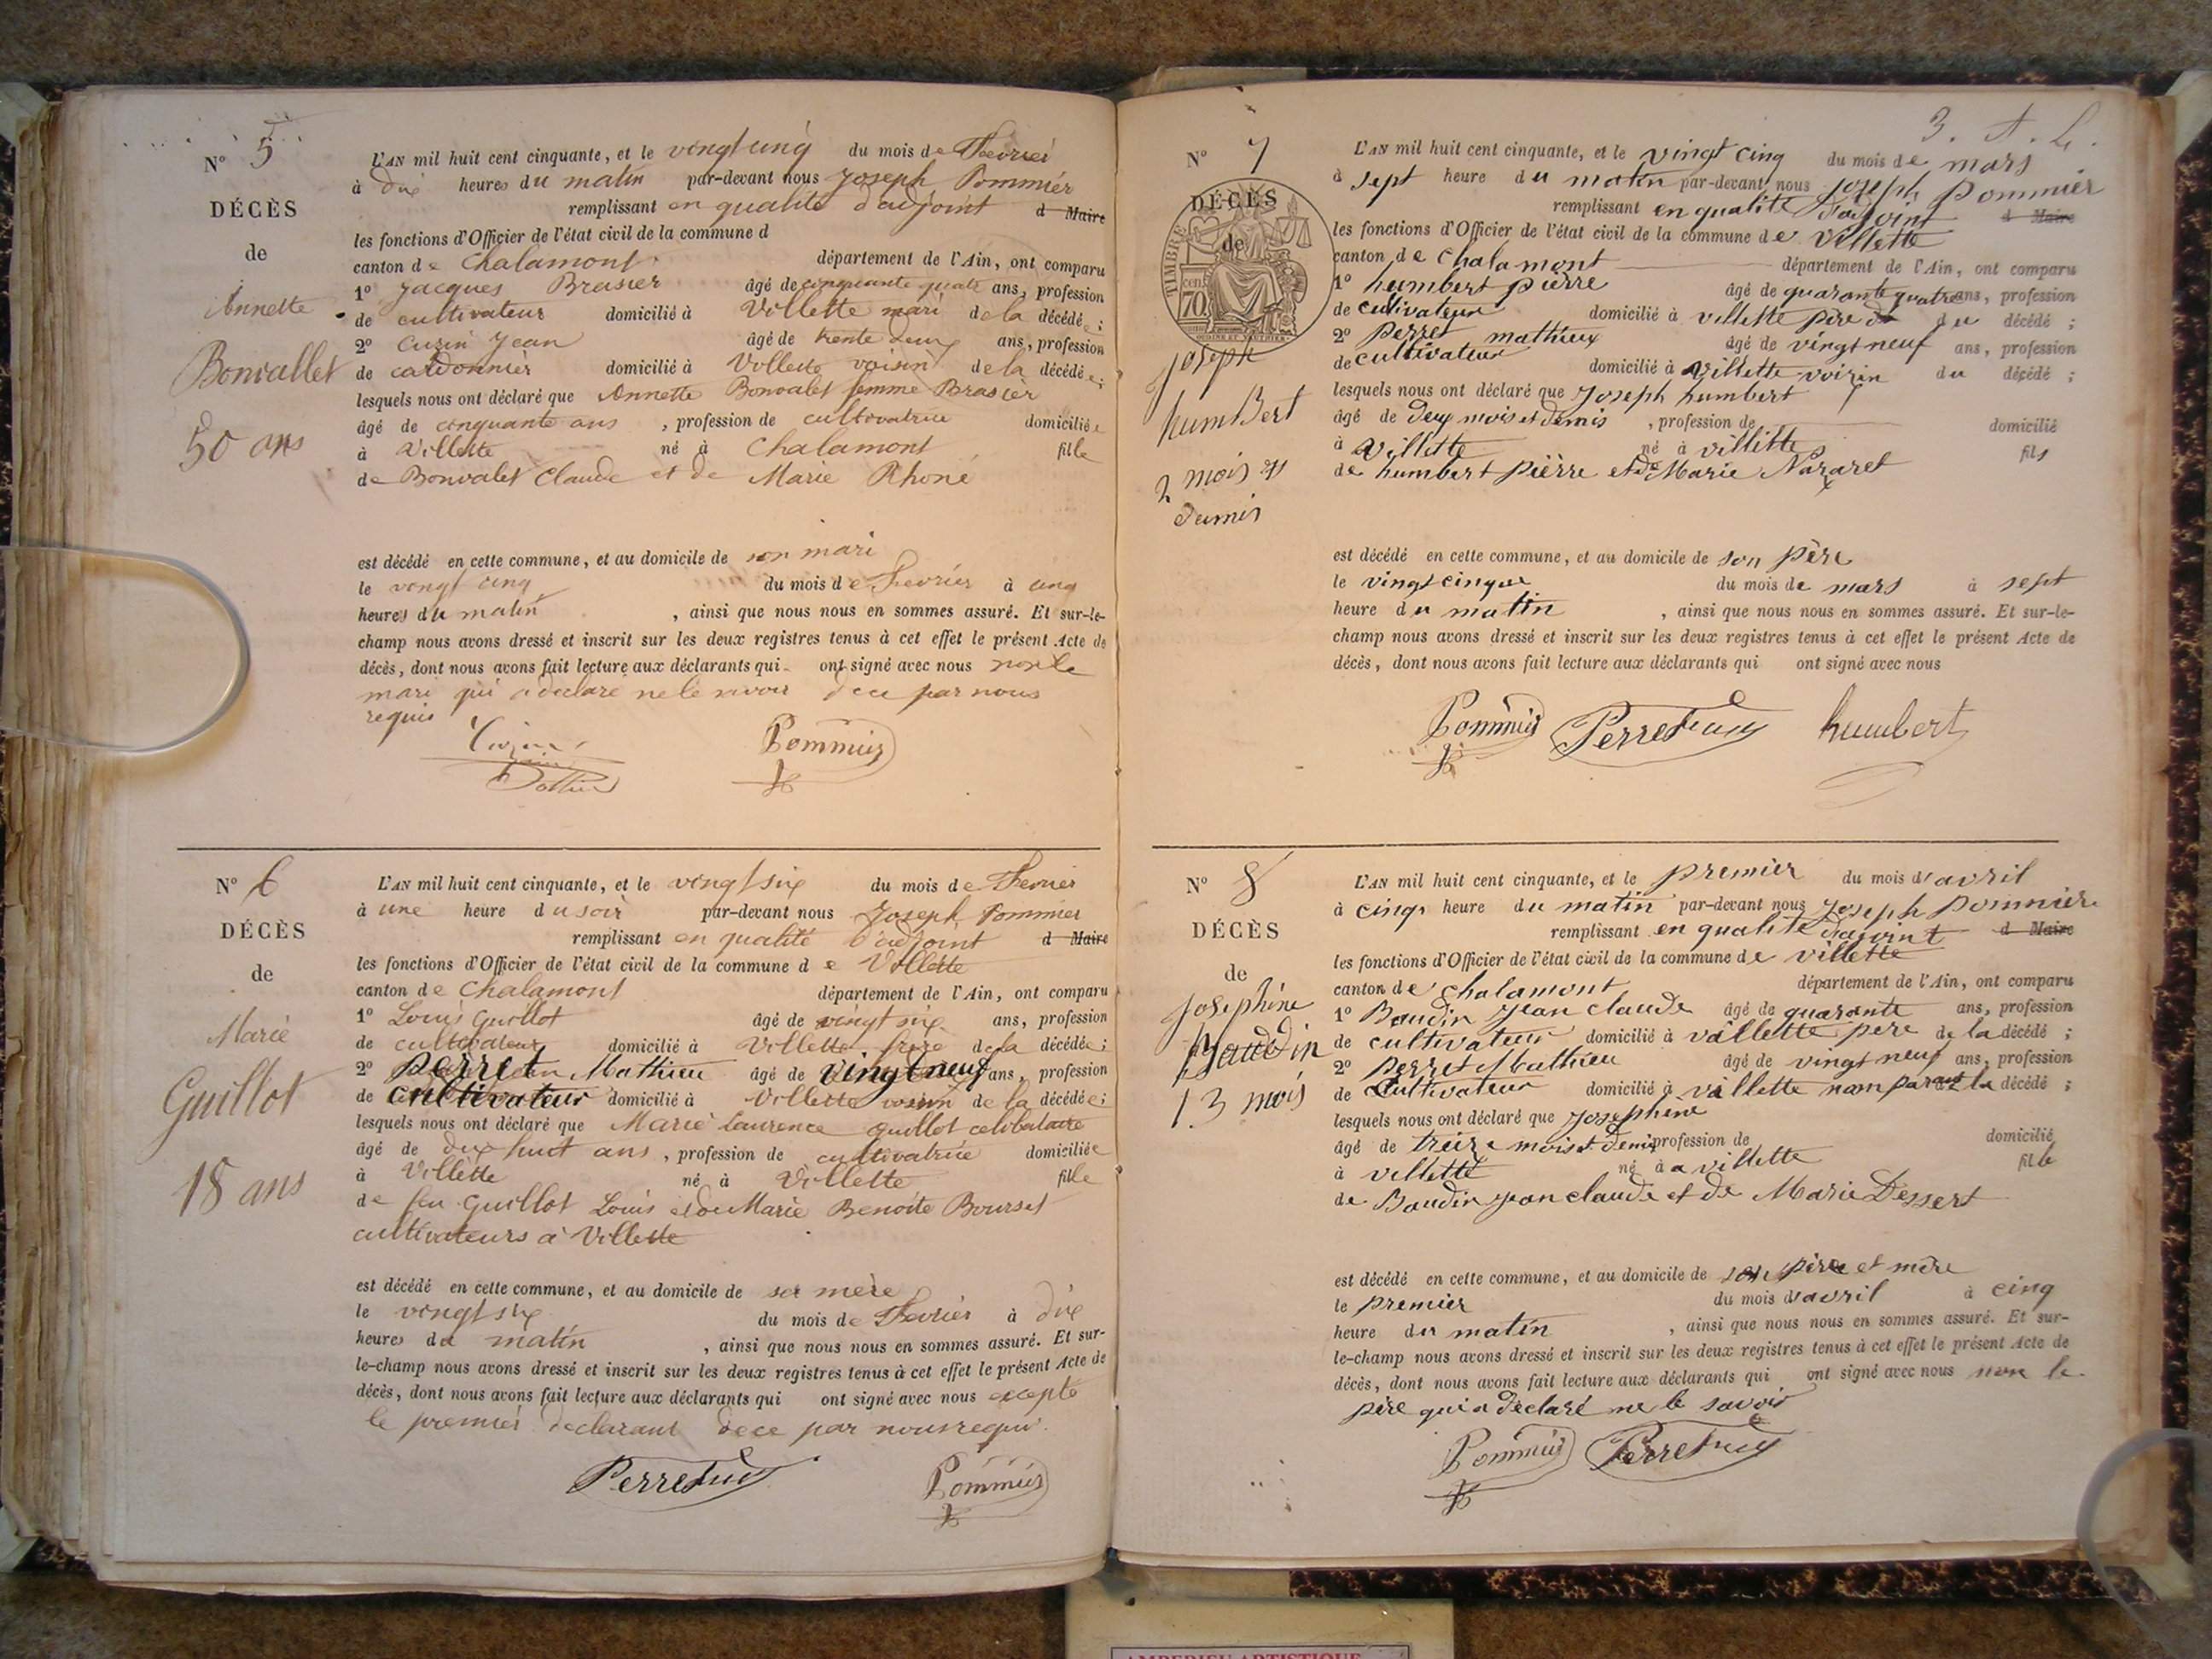 N° 5
DÉCÈS
de
Annette
Bonvallet
50 ans
L'AN mil huit cent cinquante, et le vingt cinq du mois de Fevrier
à dix heures du matin par-devant nous Joseph Pommier
remplissant en qualité d'adjoint d Maire
les fonctions d'Officier de l'état civil de la commune d
canton de Chalamont département de l'Ain, ont comparu
1° Jacques Brasier âgé de cinquante quatre ans, profession
de cultivateur domicilié à Villette mari de la décédée;
2° Cuzin Jean âgé de trente deux ans, profession
de cordonnier domicilié à Villette voisin de la décédée;
lesquels nous ont déclaré que Annette Bonvalet femme Brasier
âgé de cinquante ans, profession de cultivatrice domiciliée
à Villette né à Chalamont fille
de Bonvalet Claude et de Marie Rhoné
est décédé en cette commune, et au domicile de son mari
le vingt cinq du mois de Fevrier à cinq
heures du matin, ainsi que nous nous en sommes assuré. Et sur-le-
champ nous avons dressé et inscrit sur les deux registres tenus à cet effet le présent Acte de
décès, dont nous avons fait lecture aux déclarants qui ont signé avec nous non le
mari qui a declaré ne le savoir de ce par nous
requis
Pommier
N° 6
DÉCÈS
de
Marie
Guillot
18 ans
L'AN mil huit cent cinquante, et le vingt six du mois de Fevrier
à une heure du soir par-devant nous Joseph Pommier
remplissant en qualité d'adjoint d Maire
les fonctions d'Officier de l'état civil de la commune de Villette
canton de Chalamont département de l'Ain, ont comparu
1° Louis Guillot âgé de vingt six ans, profession
de cultivateur domicilié à Villette frère de la décédée;
2° perret Mathieu âgé de vingt neuf ans, profession
de cultivateur domicilié à Villette voisin de la décédée;
lesquels nous ont déclaré que Marie Laurence guillot celibataire
âgé de dix huit ans, profession de cultivatrice domiciliée
à Villette né à Villette fille
de feu Guillot Louis et de Marie Benoite Bourset
cultivateurs à Villette
est décédé en cette commune, et au domicile de sa mère
le vingt six du mois de Fevrier à dix
heures du matin, ainsi que nous nous en sommes assuré. Et sur-
le-champ nous avons dressé et inscrit sur les deux registres tenus à cet effet le présent Acte de
décès, dont nous avons fait lecture aux déclarants qui ont signé avec nous excepté
le premier declarant de ce par nous requis
Perret Pommier
3.
N° 7
DÉCÈS
de
TIMBRE
cen. 70
joseph
humbert
2 mois et
demis
L'AN mil huit cent cinquante, et le vingt cinq du mois de mars
à sept heure du matin par-devant nous joseph pommier
remplissant en qualité d'adjoint d Maire
les fonctions d'Officier de l'état civil de la commune de villette
canton de chalamont département de l'Ain, ont comparu
1° humbert pierre âgé de quarante quatre ans, profession
de cultivateur domicilié à villette père du décédé;
2° perret mathieux âgé de vingt neuf ans, profession
de cultivateur domicilié à villette voizin du décédé;
lesquels nous ont déclaré que joseph humbert
âgé de deux mois et demis, profession de domicilié
à villette né à villette fils
de humbert pierre et de Marie Nazaret
est décédé en cette commune, et au domicile de son père
le vingt cinque du mois de mars à sept
heure du matin, ainsi que nous nous en sommes assuré. Et sur-le-
champ nous avons dressé et inscrit sur les deux registres tenus à cet effet le présent Acte de
décès, dont nous avons fait lecture aux déclarants qui ont signé avec nous
Pommier Perret humbert
N° 8
DÉCÈS
de
josephine
Baudin
13 mois
L'AN mil huit cent cinquante, et le premier du mois d'avril
à cinq heure du matin par-devant nous joseph pommier
remplissant en qualité d'adjoint d Maire
les fonctions d'Officier de l'état civil de la commune de villette
canton de chalamont département de l'Ain, ont comparu
1° Baudin jean claude âgé de quarante ans, profession
de cultivateur domicilié à villette pere de la décédé;
2° perret Mathieu âgé de vingt neuf ans, profession
de cultivateur domicilié à villette non parent la décédé;
lesquels nous ont déclaré que josephine
âgé de treize mois et demi profession de domicilié
à villette né à a villette fille
de Baudin jean claude et de Marie Dessert
est décédé en cette commune, et au domicile de son père et mère
le premier du mois d'avril à cinq
heure du matin, ainsi que nous nous en sommes assuré. Et sur-
le-champ nous avons dressé et inscrit sur les deux registres tenus à cet effet le présent Acte de
décès, dont nous avons fait lecture aux déclarants qui ont signé avec nous non le
père qui a declaré ne le savoir
Pommier Perret
AMBERIEU ARTISTIQUE